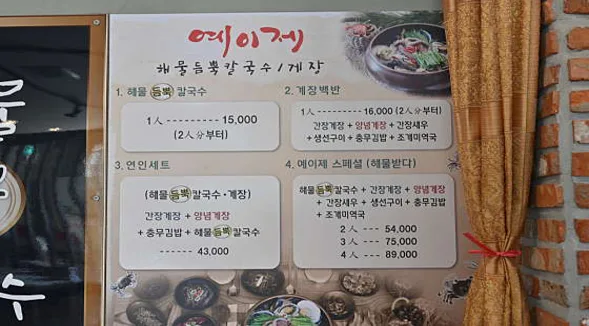 예이제
해물듬뿍칼국수/게장
1. 해물듬뿍칼국수
1人 --------- 15,000
(2人분부터)
2. 게장백반
1人 --------- 16,000 (2人분부터)
간장게장 + 양념게장 + 간장새우
+ 생선구이 + 충무김밥 + 조개미역국
3. 연인세트
(해물듬뿍칼국수·게장)
간장게장 + 양념게장
+ 충무김밥 + 해물듬뿍칼국수
------ 43,000
4. 예이제 스페셜 (해물받다)
해물듬뿍칼국수 + 간장게장 + 양념게장
+ 간장새우 + 생선구이 + 충무김밥
+ 조개미역국
2人 --- 54,000
3人 --- 75,000
4人 --- 89,000
수